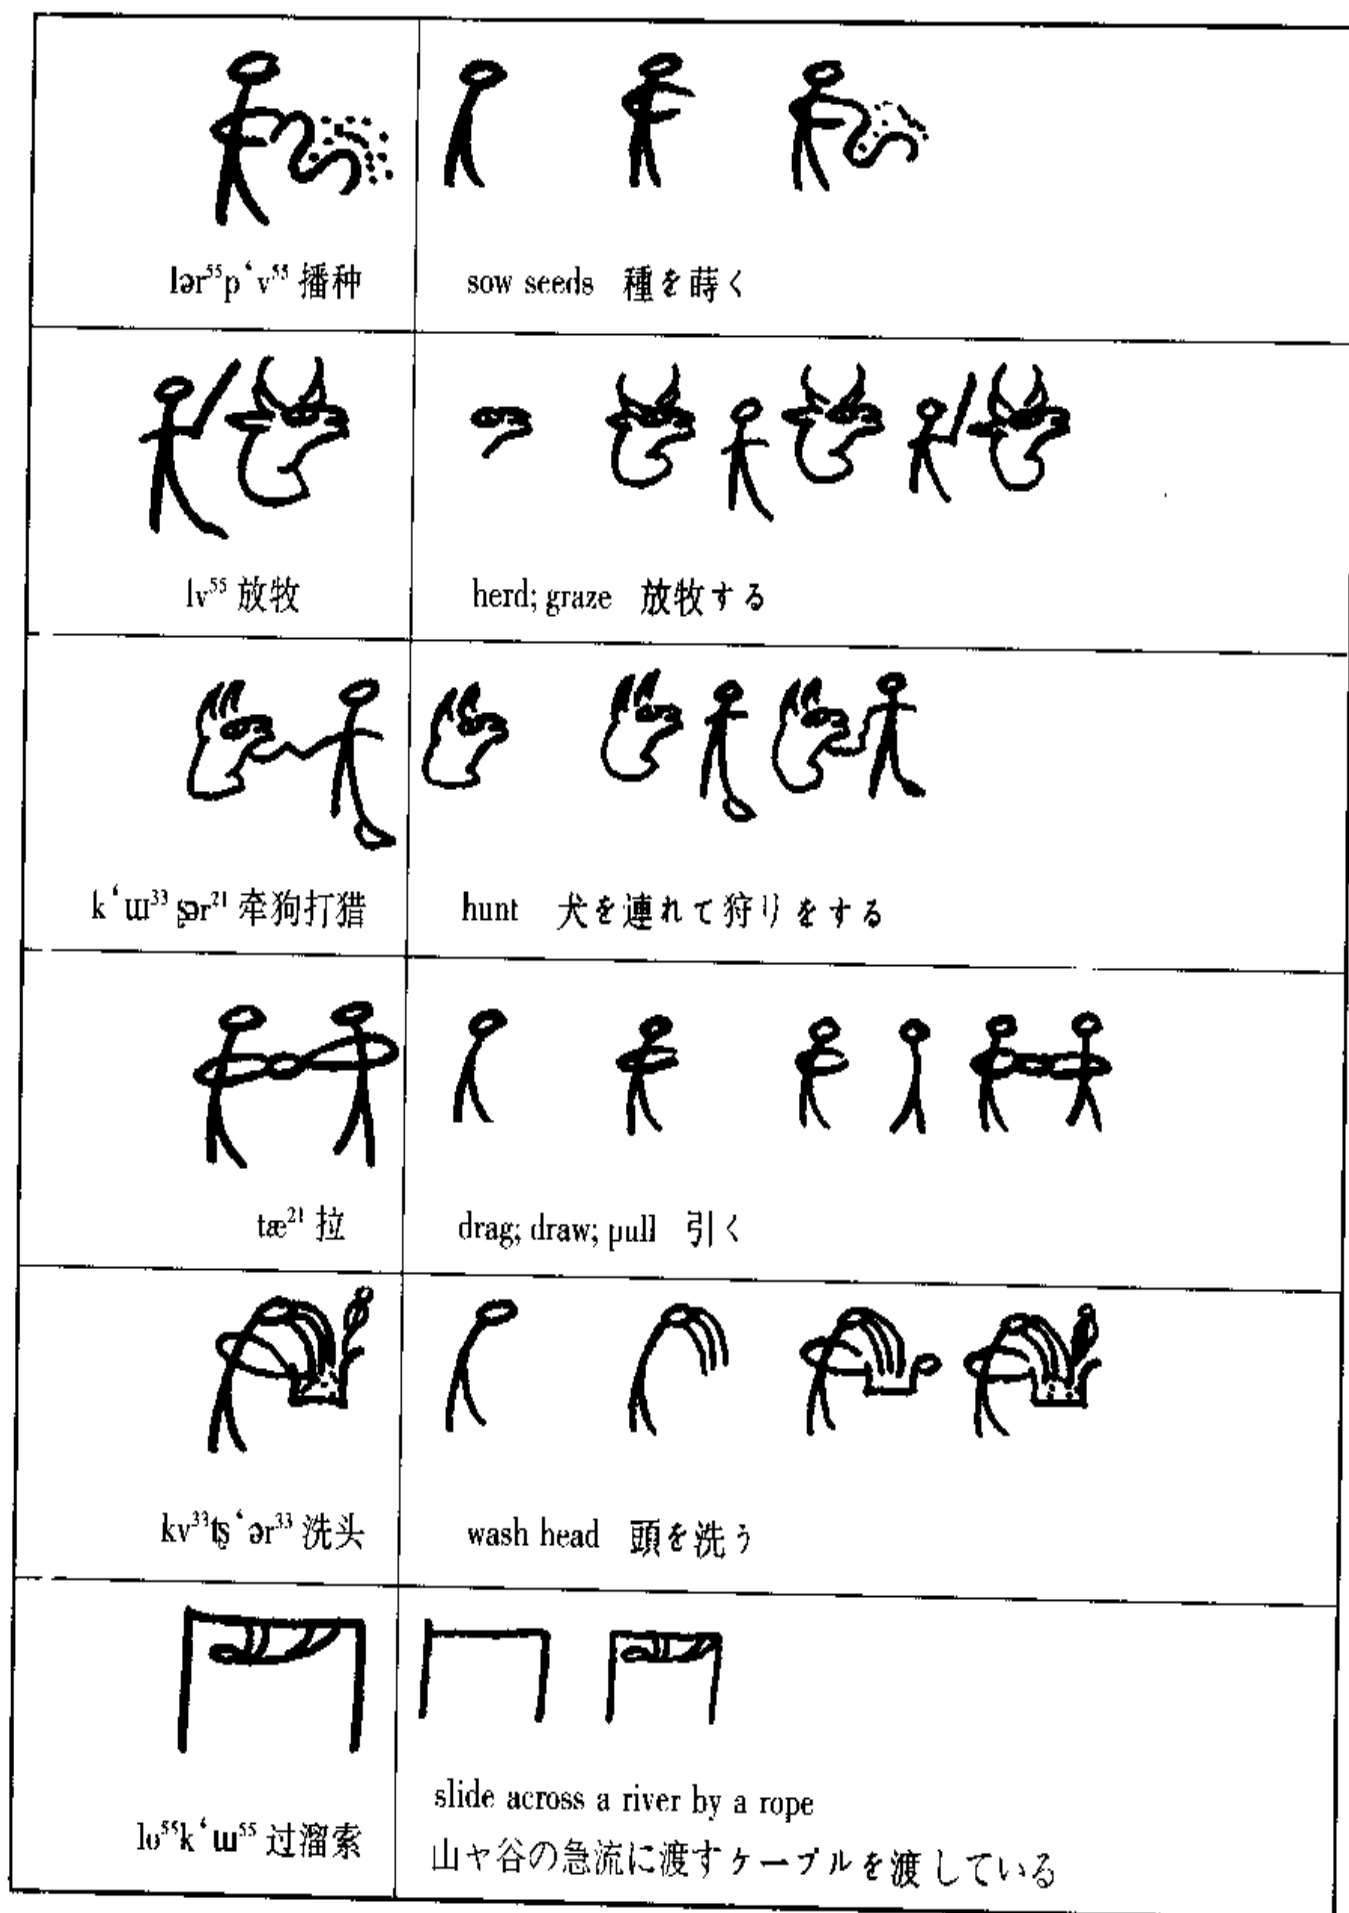 lər⁵⁵pʻv⁵⁵ 播种
sow seeds 種を蒔く
lv⁵⁵ 放牧
herd; graze 放牧する
kʻɯ³³ ʂər²¹ 牵狗打猎
hunt 犬を連れて狩りをする
tæ²¹ 拉
drag; draw; pull 引く
kv³³tʂʻər³³ 洗头
wash head 頭を洗う
lo⁵⁵kʻɯ⁵⁵ 过溜索
slide across a river by a rope
山ヤ谷の急流に渡すケーブルを渡している